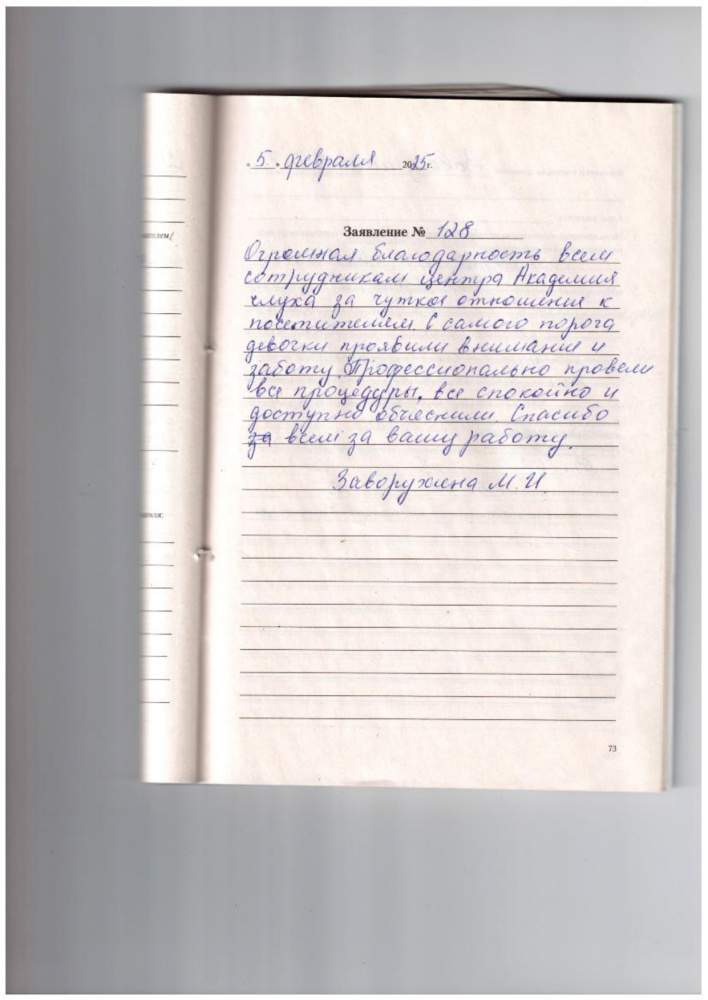 „5" февраля 2025г.
Заявление № 128
Огромная благодарность всем
сотрудникам центра Академия
слуха за чуткое отношение к
посетителям. С самого порога
девочки проявили внимание и
заботу. Профессионально провели
все процедуры, все спокойно и
доступно объяснили. Спасибо
за всем за вашу работу.
М.И.
73